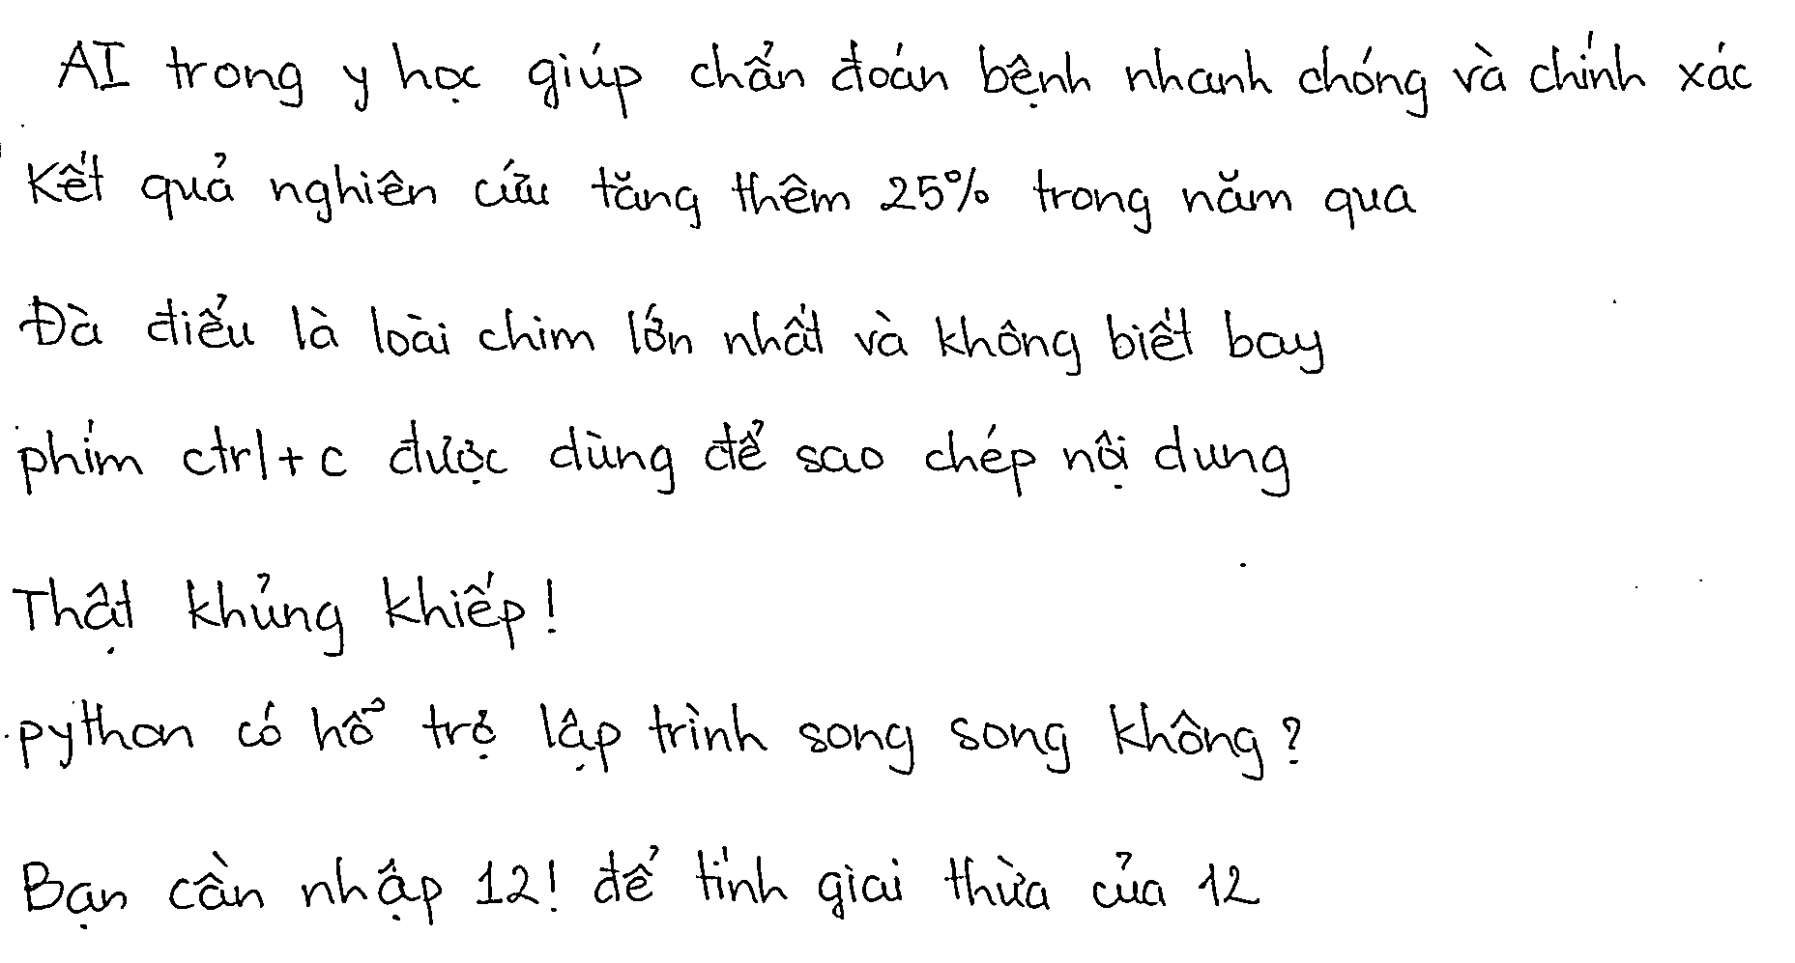 AI trong y học giúp chẩn đoán bệnh nhanh chóng và chính xác
Kết quả nghiên cứu tăng thêm 25% trong năm qua
Đà điểu là loài chim lớn nhất và không biết bay
phím ctrl+c được dùng để sao chép nội dung
Thật khủng khiếp!
python có hổ trợ lập trình song song không?
Bạn cần nhập 12! để tính giai thừa của 12